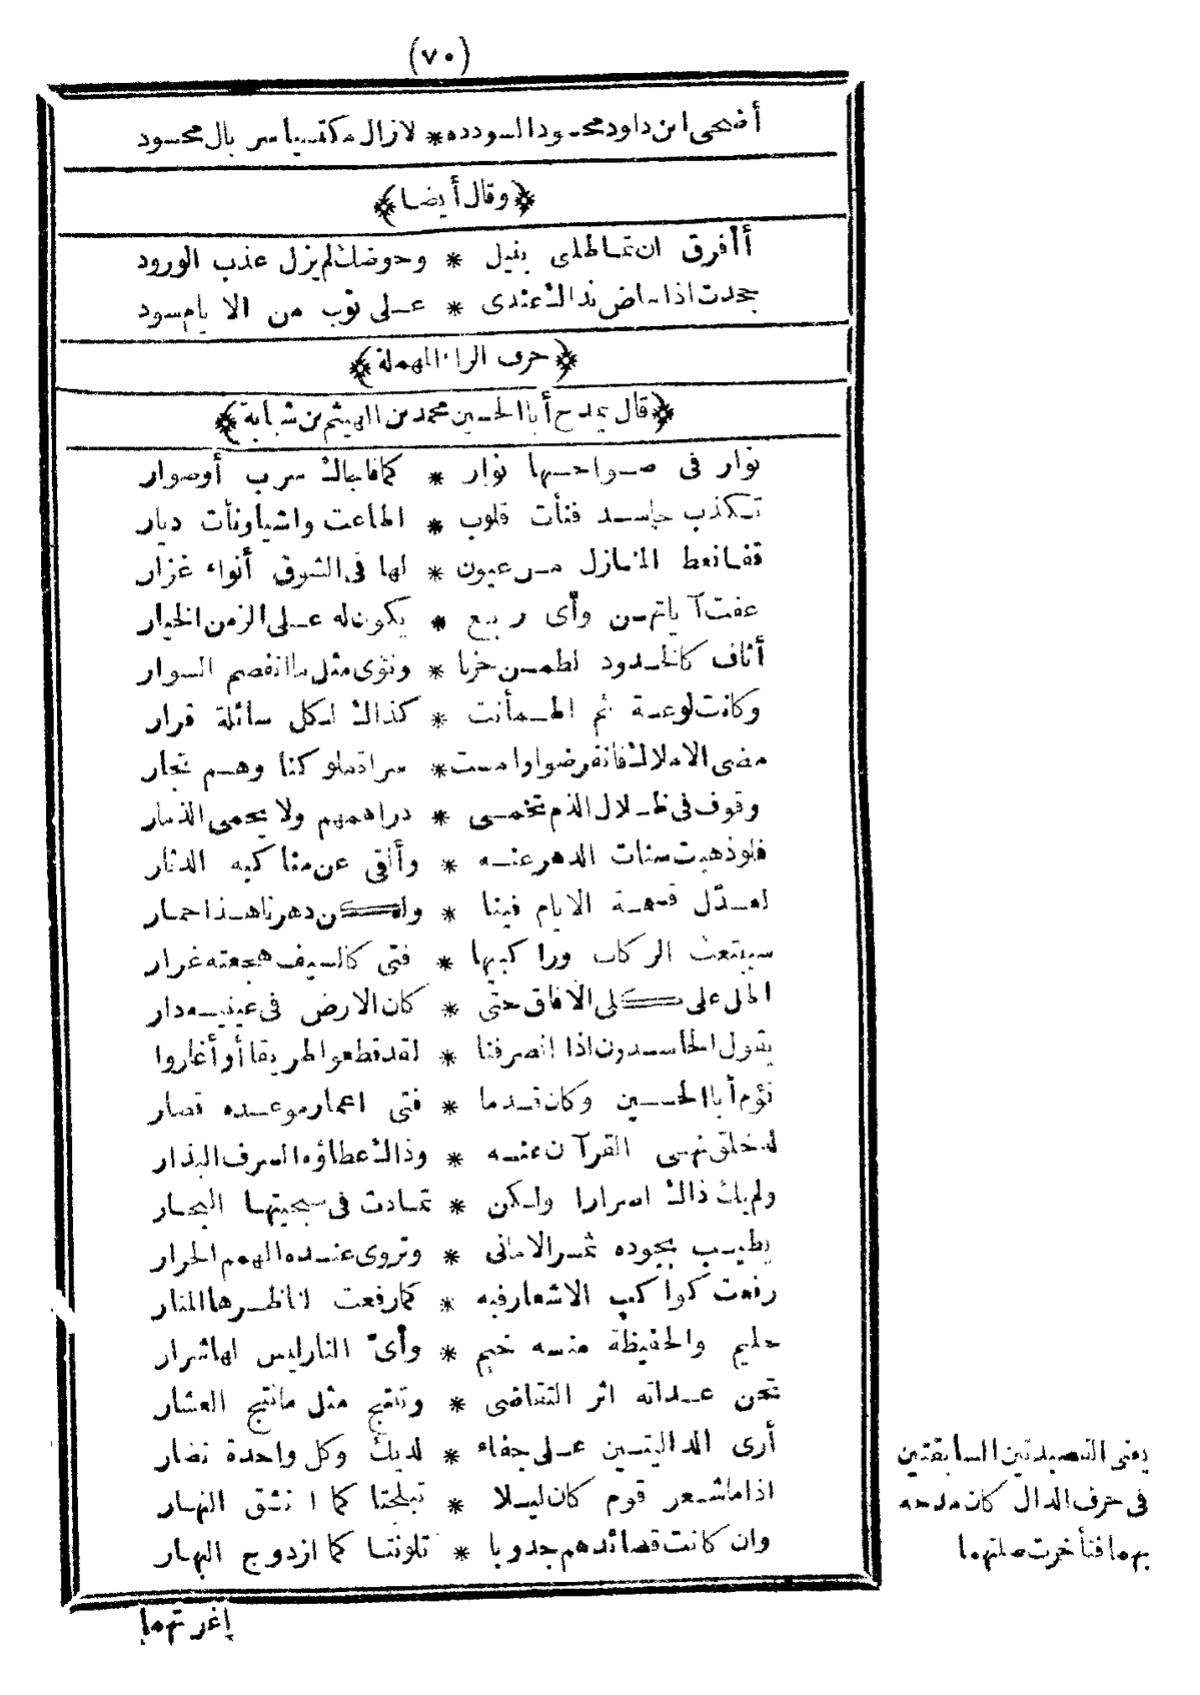 (٧٠)
أضحى ابن داود محسودا لسودده * لازال مكتسيا سربال محسود
﴿وقال أيضا﴾
أأفرق ان تماطلنى بنيل * وحوضك لم يزل عذب الورود
جحدت اذا بياض نداك عندى * على نوب من الايام سود
﴿حرف الراء المهملة﴾
﴿قال يمدح أبا الحسين محمد بن الهيثم بن شبابة﴾
نوار فى صواحبها نوار * كما فاجاك سرب أو صوار
تكذب حاسد فنأت قلوب * اطاعت واشيا ونأت ديار
قفا نعط المنازل من عيون * لها فى الشوق أنواء غزار
عفت آياتهن وأى ربع * يكون له على الزمن الخيار
أثاف كالخدود لطمن حزنا * ونؤى مثل ما انفصم السوار
وكانت لوعة ثم اطمأنت * كذاك لكل سائلة قرار
مضى الاملاك فانقرضوا وامست * سراة ملوكنا وهم تجار
وقوف فى ظلال الذم تحمى * دراهمهم ولا يحمى الذمار
فلو ذهبت سنات الدهر عنه * وألقى عن مناكبه الدثار
لعدّل قسمة الايام فينا * ولكن دهرنا هذا حمار
سيبتعث الركاب وراكبيها * فتى كالسيف هجعته غرار
اطل على كلى الآفاق حتى * كان الارض فى عينيه دار
يقول الحاسدون اذا انصرفنا * لقد قطعوا طريقا أو أغاروا
نؤم أبا الحسين وكان قدما * فتى اعمار موعده قصار
له خلق نهى القرآن عنه * وذاك عطاؤه السرف البذار
ولم يك ذاك اصرارا ولكن * تمادت فى سجيتها البحار
يطيب بجوده ثمر الامانى * وتروى عنده الهمم الحرار
رفعت كواكب الاشعار فيه * كما رفعت لناظرها المنار
حليم والحفيظة منه خيم * وأىّ النار ليس لها شرار
تحن عداته اثر التقاضى * وتنتج مثل ما نتج العشار
أرى الداليتين على جفاء * لديك وكل واحدة نضار
اذا ما شعر قوم كان ليلا * تبلجتا كما انشق النهار
وان كانت قصائدهم جدوبا * تلونتا كما ازدوج البهار
يعنى القصيدتين السابقتين
فى حرف الدال كان مدحه
بهما فتأخرت صلتهما
اغرتهما